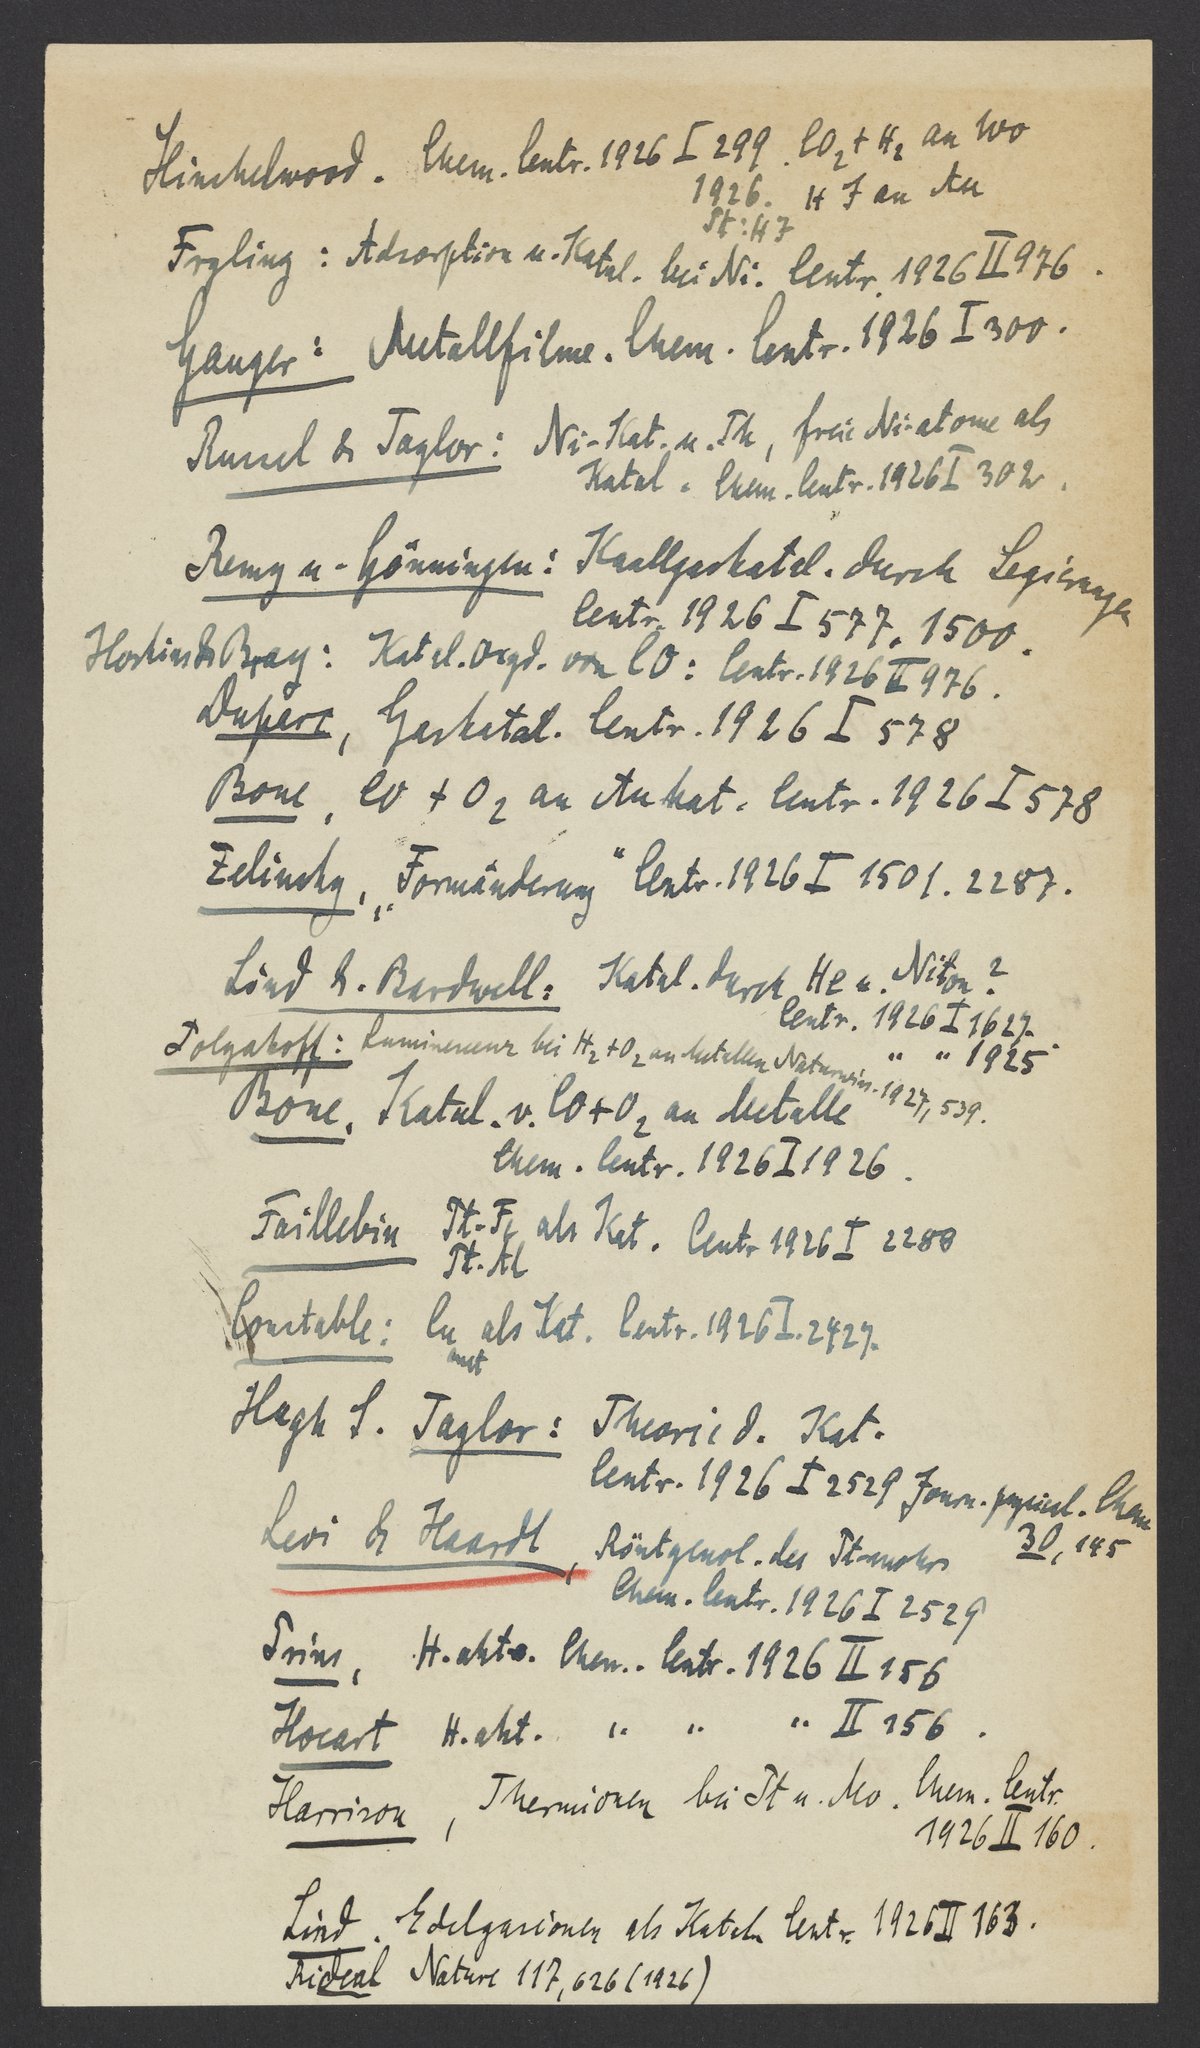 Hinshelwood. Chem. Centr. 1926 I 299. CO2 + H2 an Wo
1926. HJ an Au
Pt: HJ
Fryling: Adsorption u. Katal. bei Ni. Centr. 1926 II 976.
Gauger: Metallfilme. Chem. Centr. 1926 I 300.
Russel & Taylor: Ni-Kat. u. Th, freie Ni-atome als
Katal. Chem. Centr. 1926 I 302.
Remy u. Gönningen: Knallgaskatal. durch Legierungen
Centr. 1926 I 577. 1500.
Hoskins & Bray: Katal. Oxyd. von CO: Centr. 1926 II 976.
Duparc, Gaskatal. Centr. 1926 I 578
Bone, CO + O2 an Au kat. Centr. 1926 I 578
Zelinsky, „Formänderung“ Centr. 1926 I 1501. 2287.
Lind & Bardwell: Katal. durch He u. Niton?
Centr. 1926 I 1627.
" " 1925.
Polyakoff: Luminescenz bei H2 + O2 an Metallen Naturwiss. 1927, 539.
Bone, Katal. v. CO + O2 an Metalle
Chem. Centr. 1926 I 1926.
Faillebin Pt-Fe als Kat. Centr 1926 I 2288
Pt-Al
Constable: Cu als Kat. Centr. 1926 I. 2427.
Hugh S. Taylor: Theorie d. Kat.
Centr. 1926 I 2529 Journ. physical. Chem
30, 145
Levi & Haardt, Röntgenol. des Pt-mohr
Chem. Centr. 1926 I 2529
Prins, H. akt. Chem. Centr. 1926 II 156
Hocart H. akt. " " " II 156.
Harrison, Thermionen bei Pt u. Mo. Chem. Centr.
1926 II 160.
Lind. Edelgasionen als Katal. Centr. 1926 II 163.
Rideal Nature 117, 626 (1926)